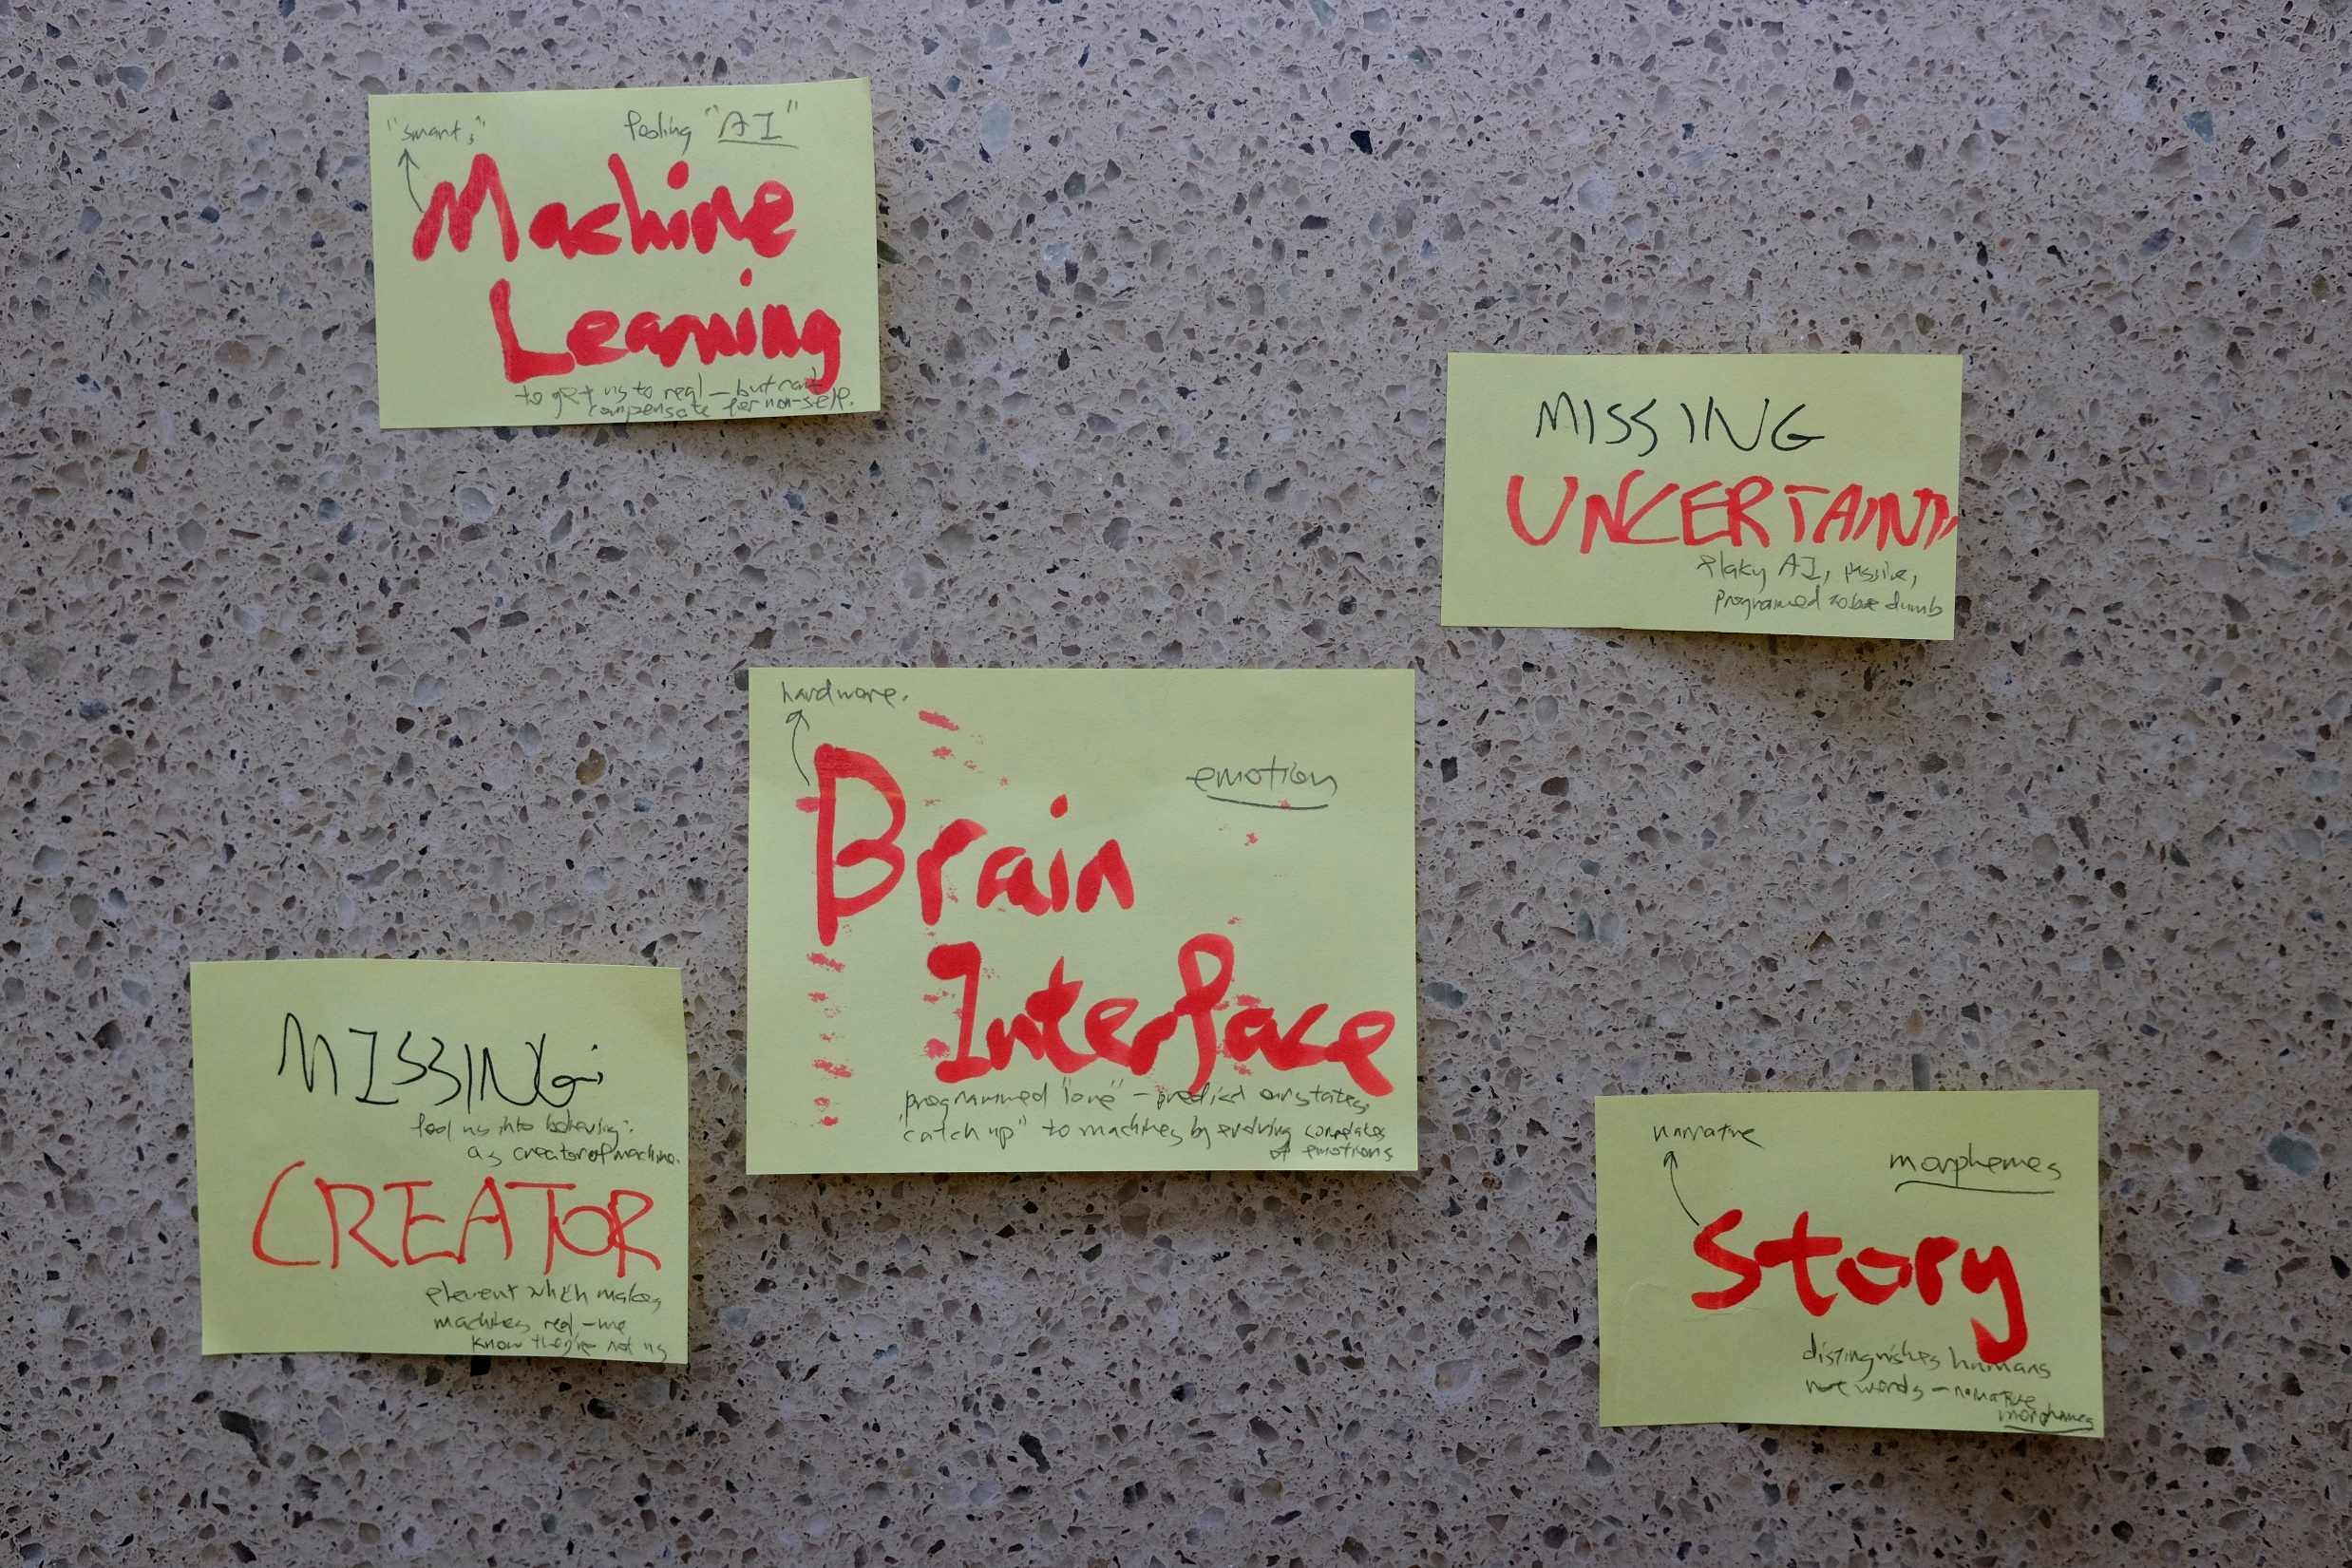 "smarts"
feeling "AI"
Machine
Learning
to get us to real – but can't
compensate for non-self.
MISSING
UNCERTAINTY
flaky AI, passive,
programmed to be dumb
hardware.
emotion
Brain
Interface
programmed "love" – predict our states,
catch up" to machines by evolving correlates
of emotions
MISSING:
fool us into believing:
as creator of machine.
CREATOR
element which makes
machines real – we
know they're not us
narrative
morphemes
Story
distinguishes humans
not words – narrative
morphemes